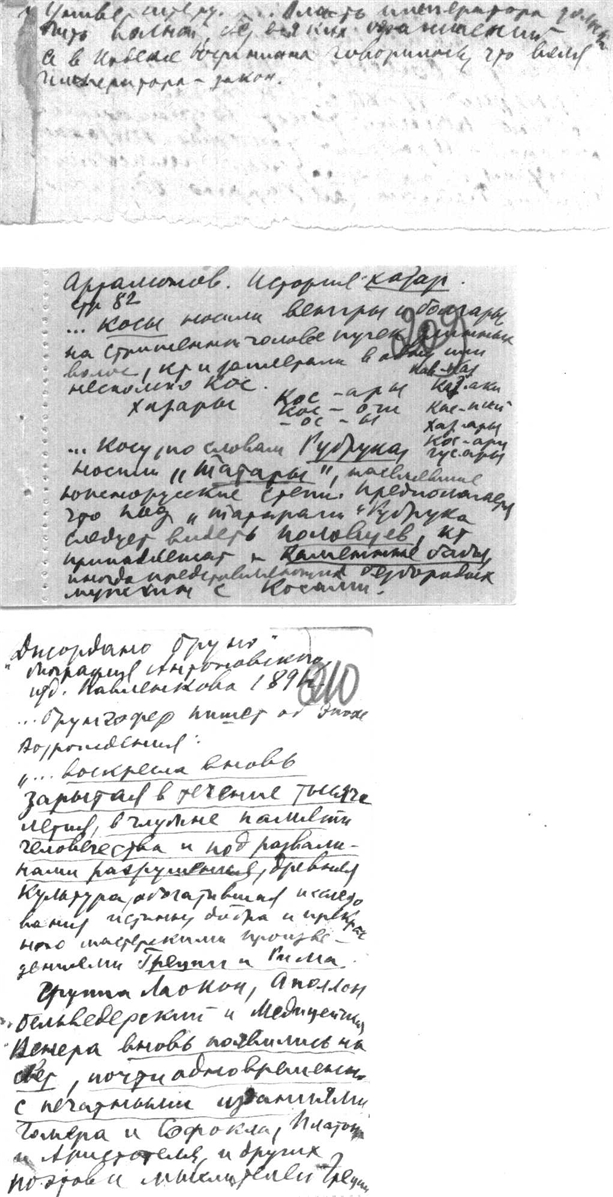 ... Власть императора должна
быть полной, без всяких ограничений
а в Новелле Юстиниана говорилось, что воля
императора – закон.
Артамонов. История хазар.
стр 82
209
... косы носили венгры и болгары
на стриженной голове пучек длинных
волос, кт и заплетали в одну или
несколько кос.
хазары Кос-ары
Кос-оги
-ос-ы
Каз-аки
Кас-пий
хаз-ары
Кос-ари
гусары
... Косу, по словам Рубрука,
носили „татары", населявшие
южнорусские степи. Предполагают
что под „татарами" Рубрука
следует видеть половцев, кт
принадлежат и каменные бабы,
иногда представляющие безбородых
мужчин с косами.
Джордано Бруно"
биография Антоновского
изд. Павленкова 189
210
... Брунгофер пишет об эпохе
Возрождения:
„... воскресла вновь
зарытая в течение тысяче
летия, в глубине памяти
человечества и под развали-
нами разрушения, древняя
культура, обогатившая исследо
вания истины добра и прекрас
ного мастерскими произве-
дениями Греции и Рима.
Группа Лаокон, Аполлон
Бельведерский и Медицейская
Венера вновь появились на
свет, почти одновременно
с печатными изданиями
Гомера и Софокла, Платона
и Аристотеля, и других
поэтов и мыслителей Греции